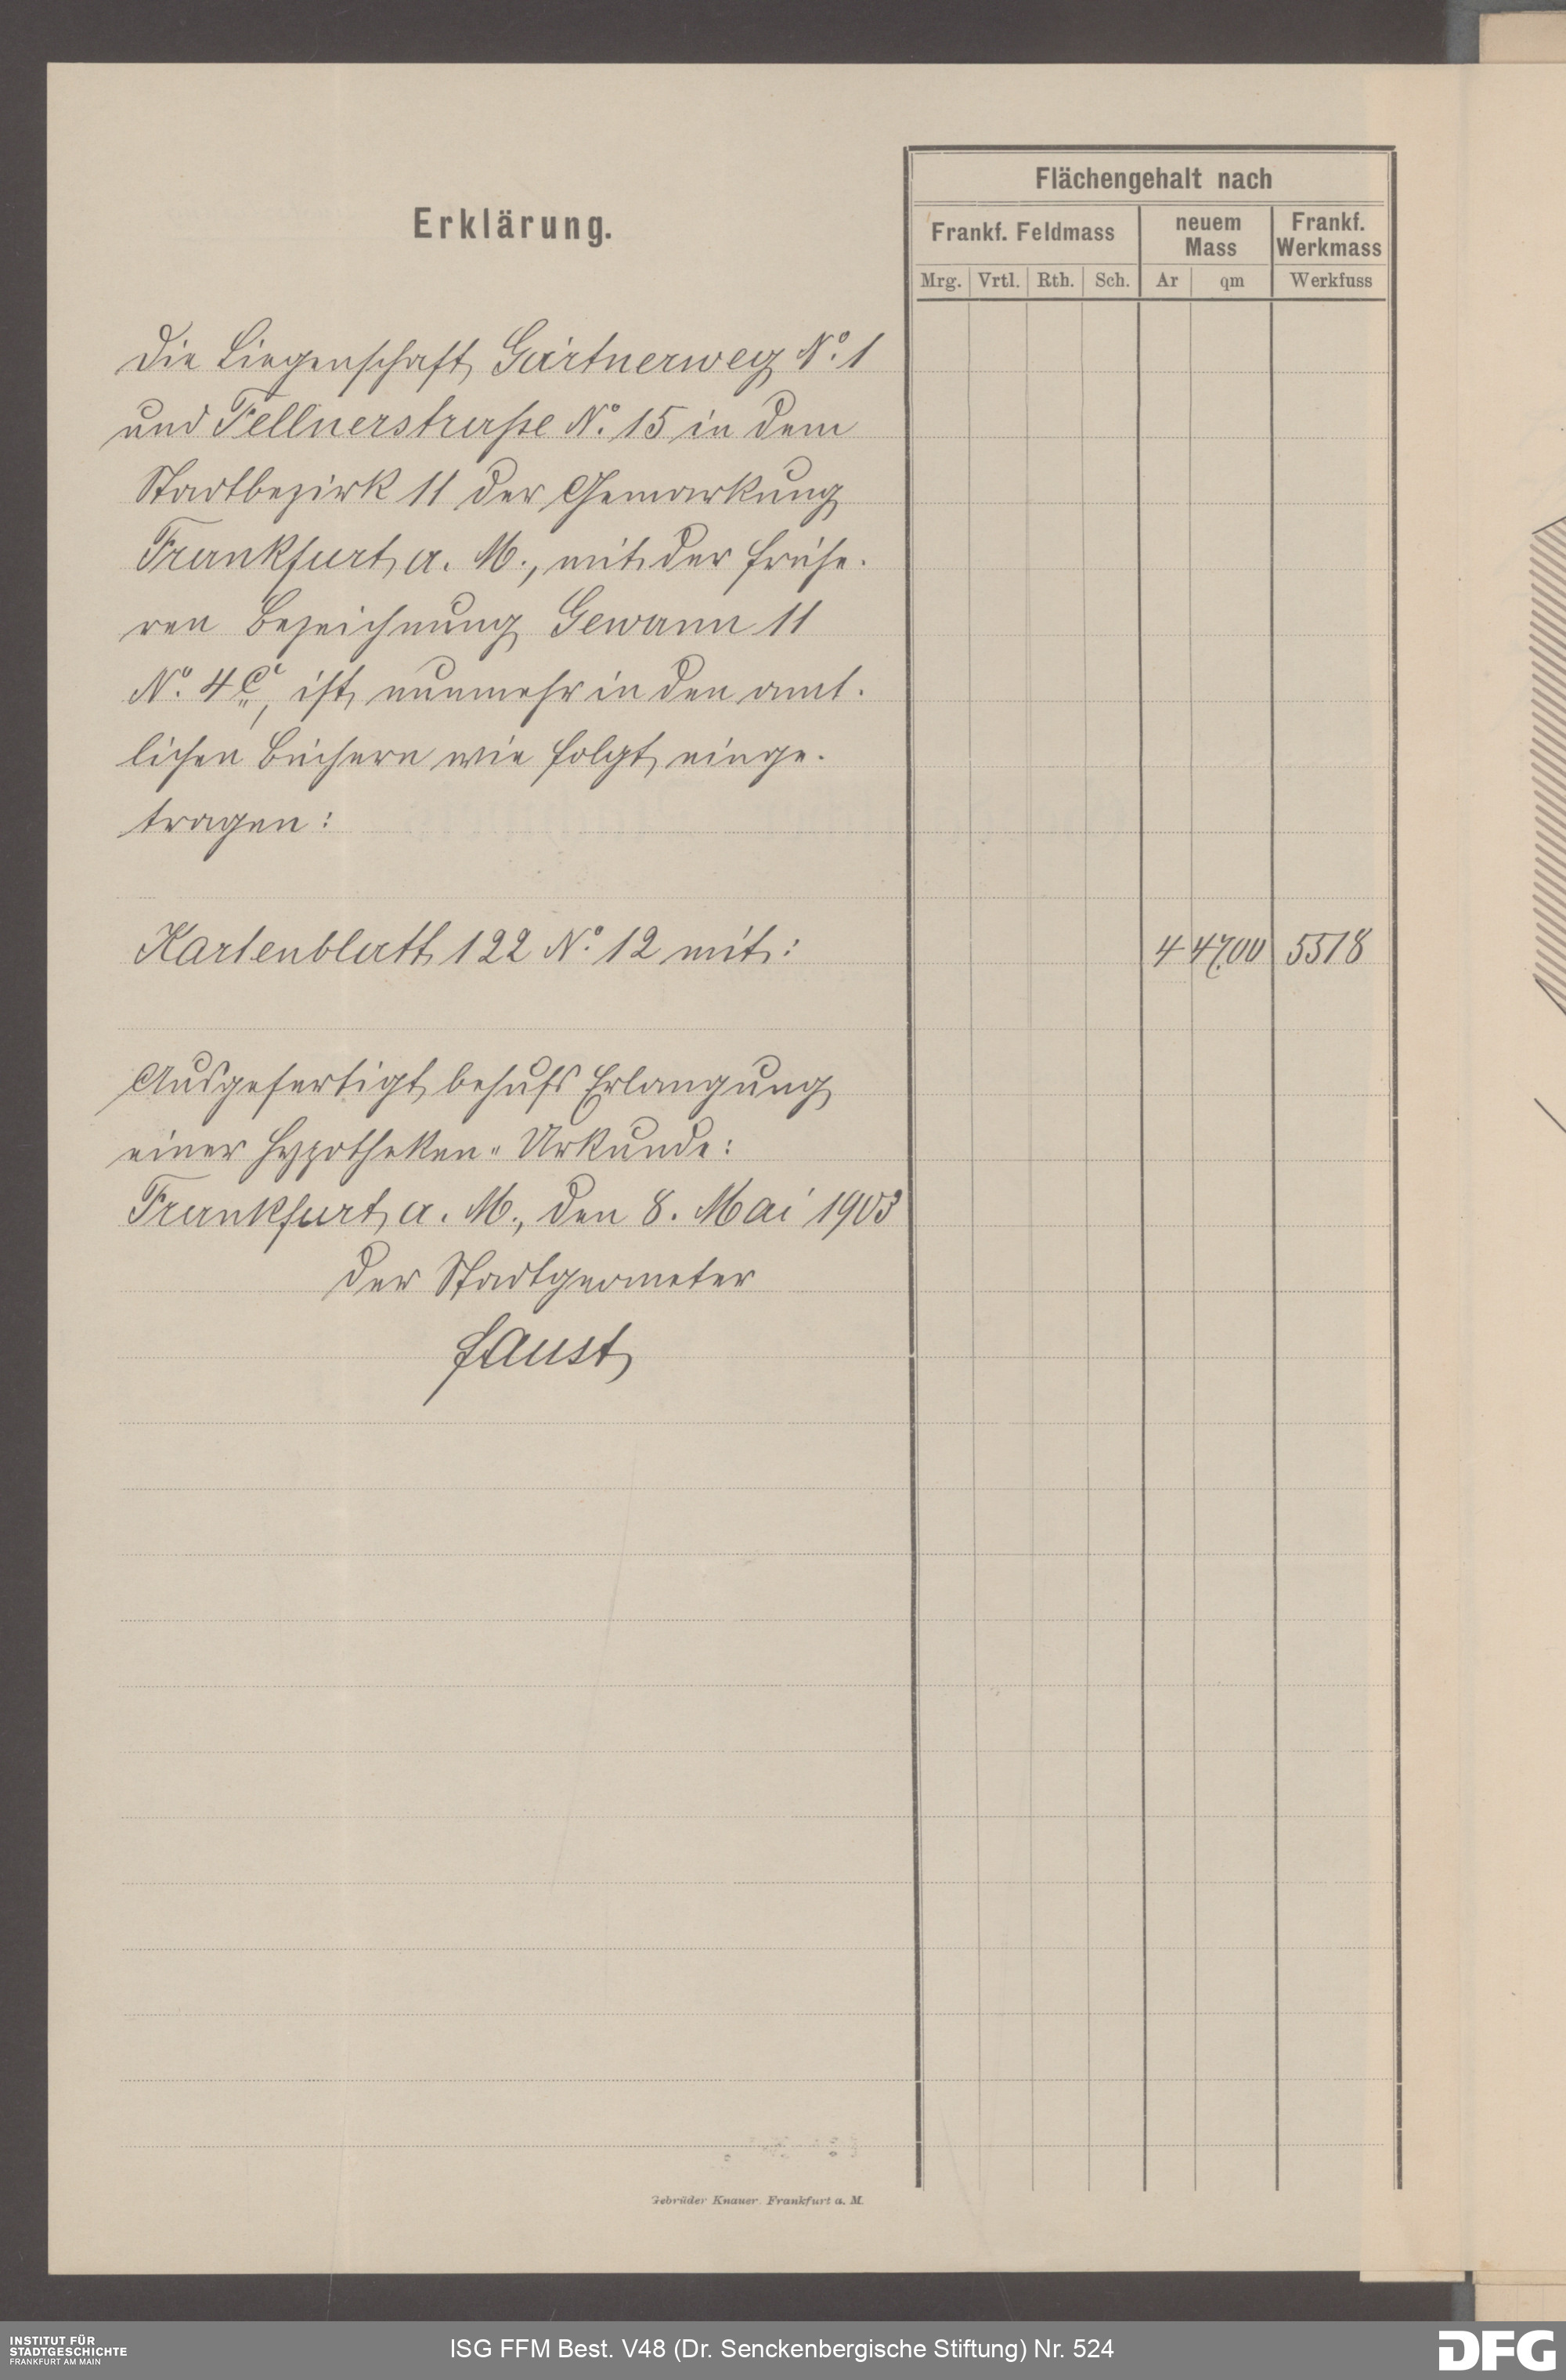 Erklärung.
Flächengehalt nach
Frankf. Feldmass
neuem
Mass
Frankf.
Werkmass
Mrg. Vrtl. Rth. Sch. Ar qm Werkfuss
Die Liegenschaft Gärtnerweg No. 1
und Fellnerstraße No. 15 in dem
Stadtbezirk 11 der Gemarkung
Frankfurt a. M., mit der frühe-
ren Bezeichnung Gewann 11
No. 4 ist nunmehr in den amt-
lichen Büchern wie folgt einge-
tragen:
Kartenblatt 122 No. 12 mit: 4 47,00 5518
Ausgefertigt behufs Erlangung
einer Hypotheken-Urkunde:
Frankfurt a. M., den 8. Mai 1903
Der Stadtgeometer
Faust
Gebrüder Knauer. Frankfurt a. M.
INSTITUT FÜR
STADTGESCHICHTE
FRANKFURT AM MAIN
ISG FFM Best. V48 (Dr. Senckenbergische Stiftung) Nr. 524
DFG